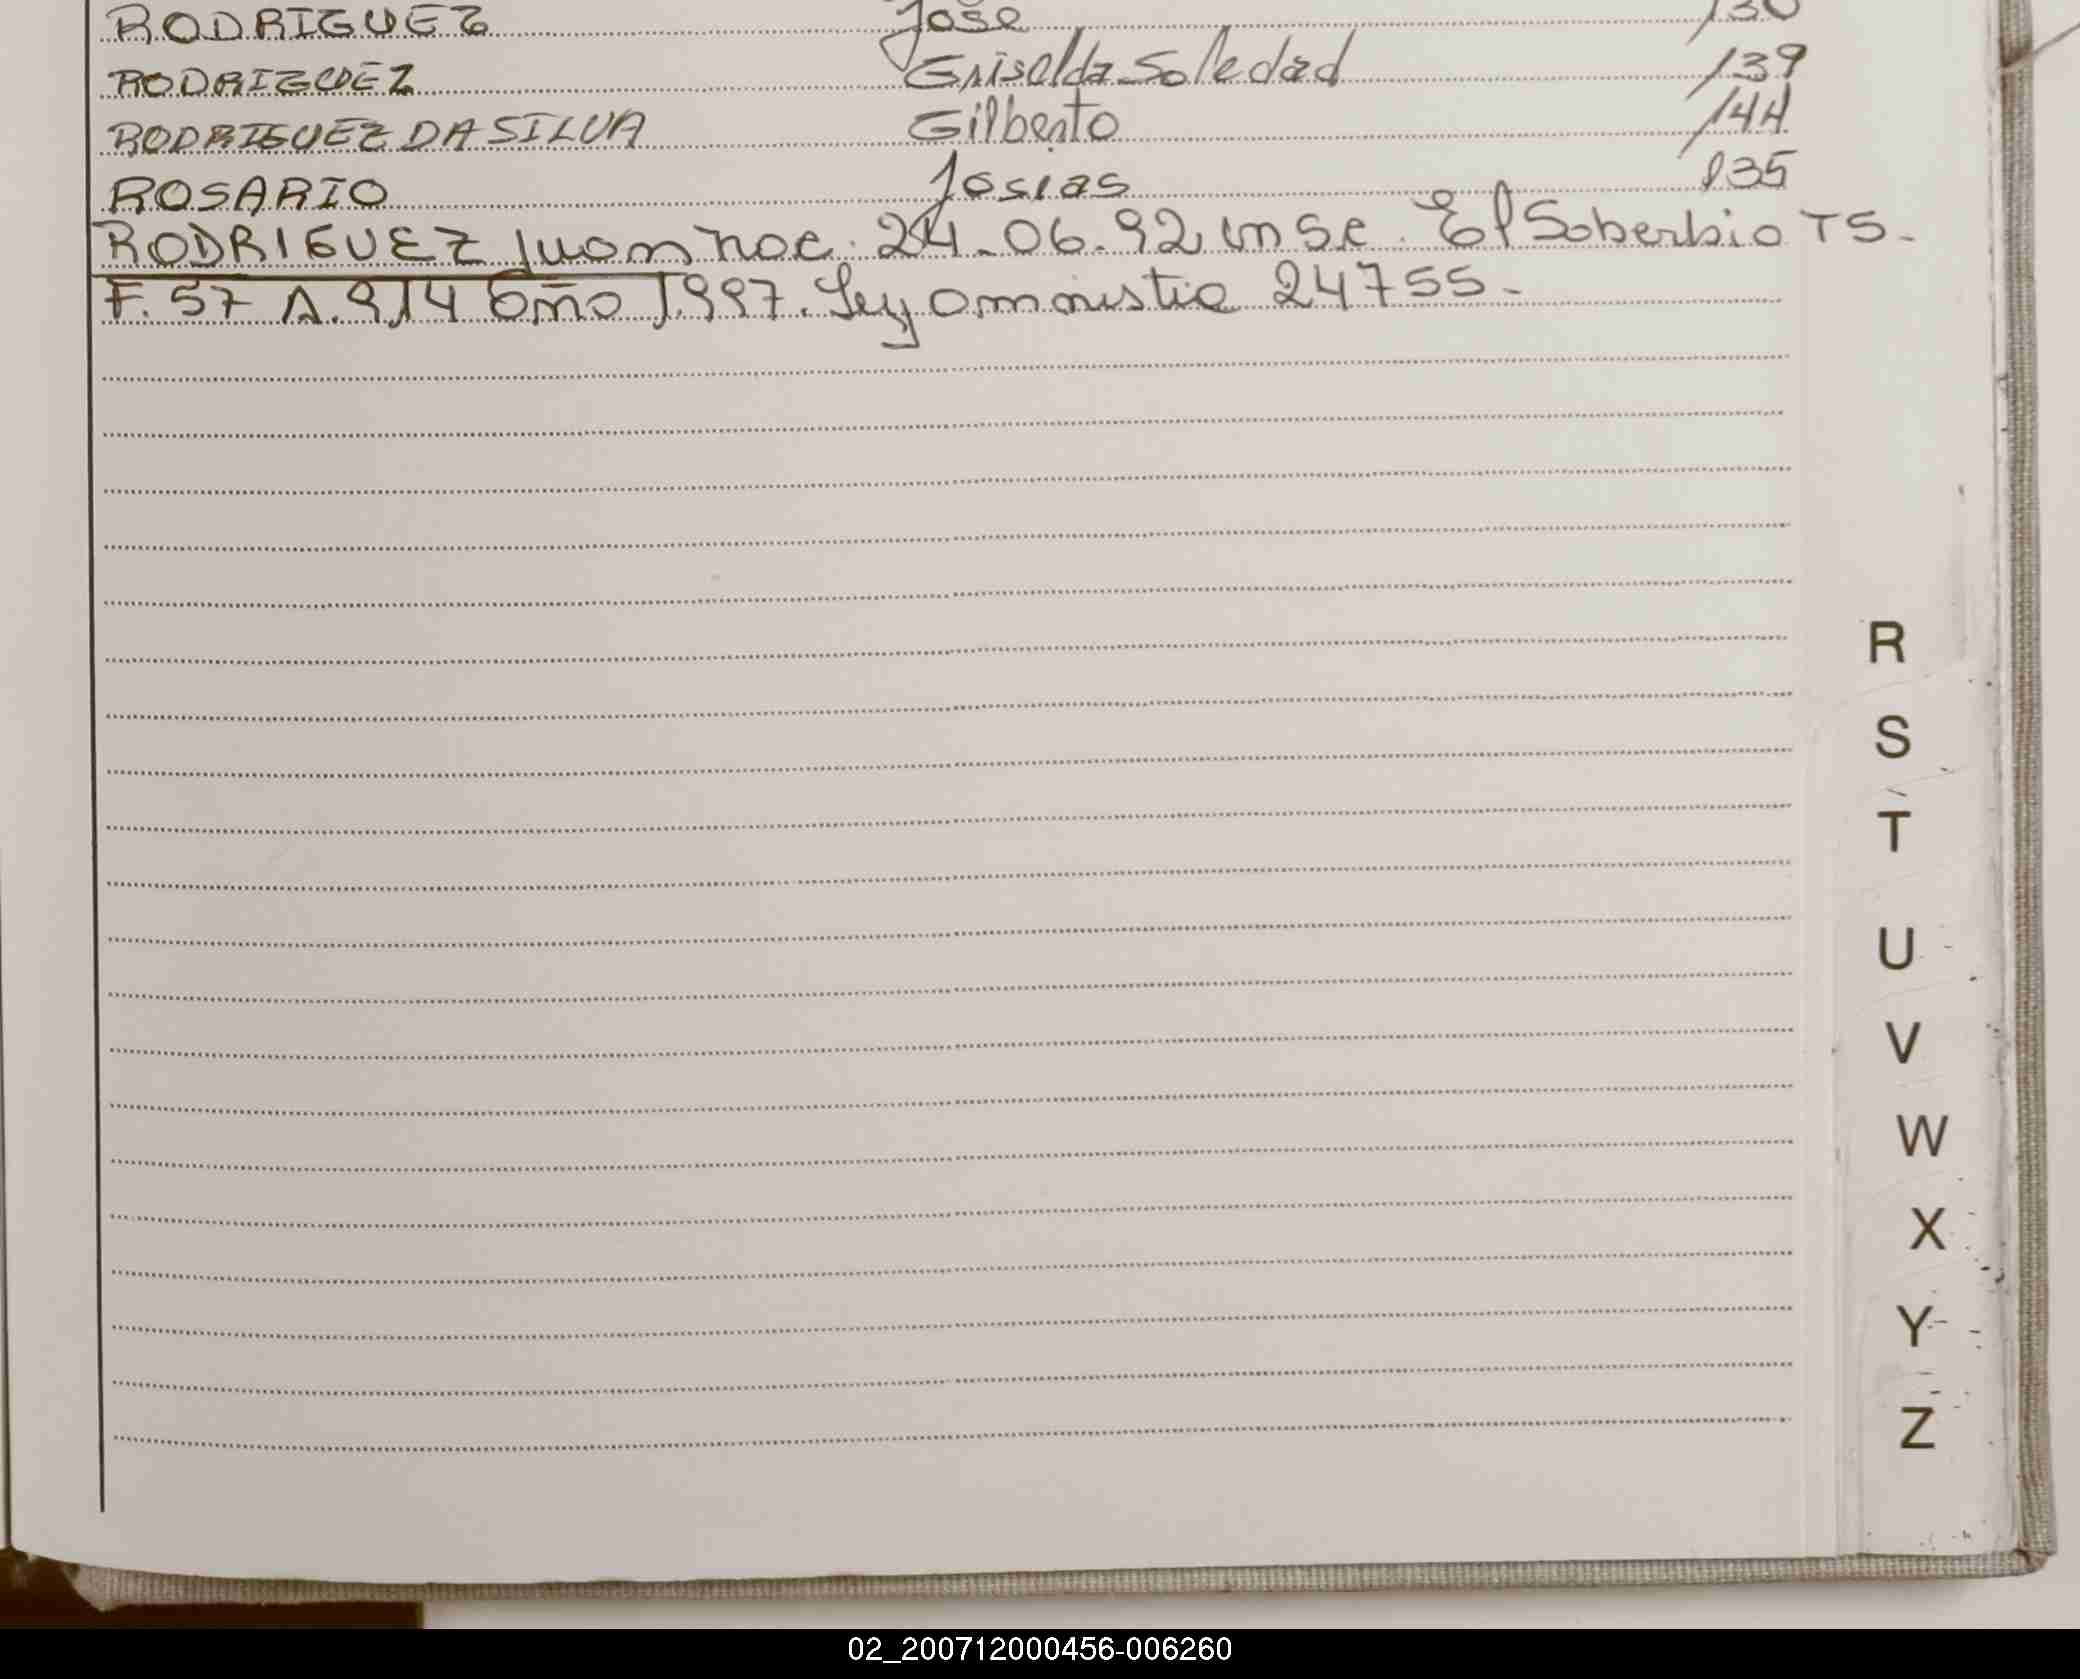 RODRIGUEZ José 130
RODRIGUEZ Griselda Soledad 139
RODRIGUEZ DA SILVA Gilberto 144
ROSARIO Josias 135
RODRIGUEZ Juan nac. 24-06-92 insc. El Soberbio T5-
F. 57 A. 914 año 1.997. Ley amnistia 24755-
R
S
T
U
V
W
X
Y
Z
02_200712000456-006260